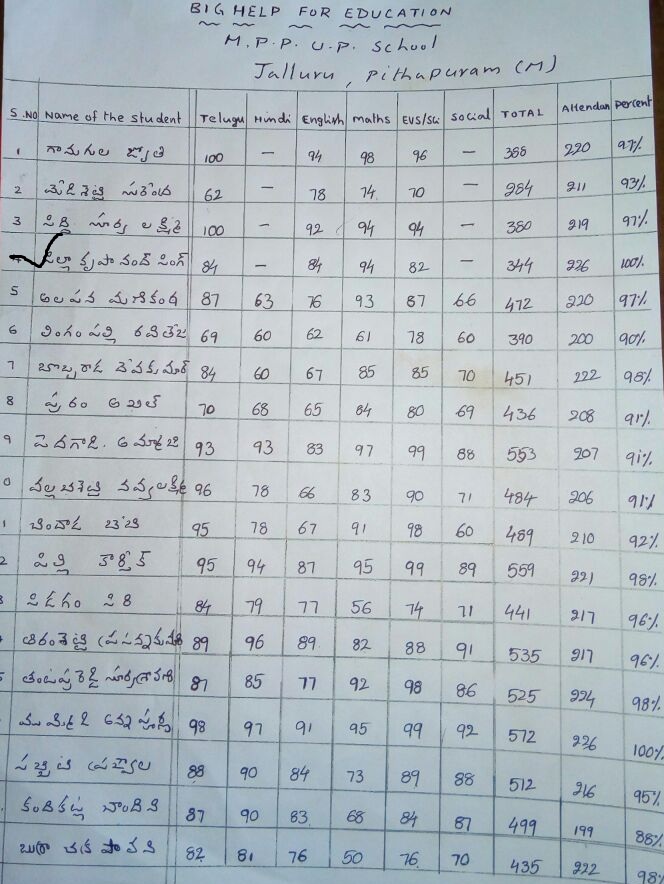 BIG HELP FOR EDUCATION
M.P.P. U.P. School
Jalluru, Pithapuram (M)
S.NO Name of the student Telugu Hindi English maths EVS/Sci Social TOTAL Attendan percent
1 గానుగుల జ్యోతి 100 – 94 98 96 – 388 220 97%
2 62 – 78 74 70 – 284 211 93%
3 పిల్లి సూర్య లక్ష్మి 100 – 92 94 94 – 380 219 97%
కృపానంద్ సింగ్ 84 – 84 94 82 – 344 226 100%
5 అలపన మణికంఠ 87 63 76 93 87 66 472 220 97%
6 లింగంపల్లి రవితేజ 69 60 62 61 78 60 390 200 90%
7 దేవకుమార్ 84 60 67 85 85 70 451 222 98%
8 అఖిల్ 70 68 65 84 80 69 436 208 91%
9 పెదగాడి. 93 93 83 97 99 88 553 207 91%
0 నవ్యలక్ష్మి 96 78 66 83 90 71 484 206 91%
1 చిందాడ బేబి 95 78 67 91 98 60 489 210 92%
2 పిల్లి కార్తీక్ 95 94 87 95 99 89 559 221 98%
3 పిడగం సిరి 84 79 77 56 74 71 441 217 96%
89 96 89 82 88 91 535 217 96%
87 85 77 92 98 86 525 224 98%
98 97 91 95 99 92 572 226 100%
88 90 84 73 89 88 512 216 95%
కందికట్ల చాందిని 87 90 83 68 84 87 499 199 88%
82 81 76 50 76 70 435 222 98%